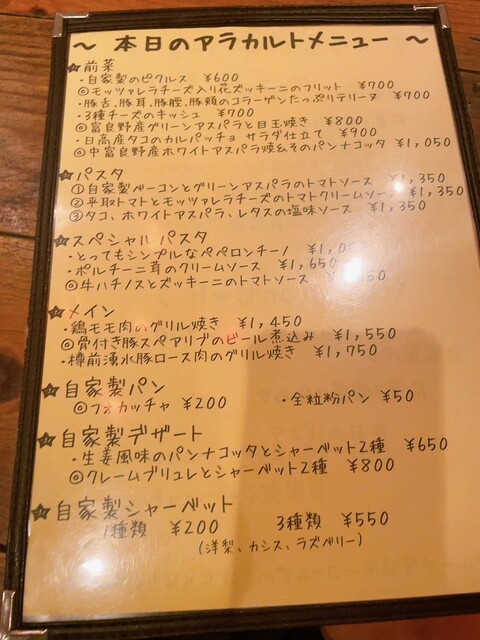 ～ 本日のアラカルトメニュー ～
☆前菜
・自家製のピクルス ¥600
◎モッツァレラチーズ入り花ズッキーニのフリット ¥700
・豚舌、豚耳、豚脛、豚頬のコラーゲンたっぷりテリーヌ ¥700
・3種チーズのキッシュ ¥700
◎富良野産グリーンアスパラと目玉焼き ¥800
・日高産タコのカルパッチョ サラダ仕立て ¥900
◎中富良野産ホワイトアスパラ焼&そのパンナコッタ ¥1,050
☆パスタ
①自家製ベーコンとグリーンアスパラのトマトソース ¥1,350
②平取トマトとモッツァレラチーズのトマトクリームソース ¥1,350
③タコ、ホワイトアスパラ、レタスの塩味ソース ¥1,350
☆スペシャルパスタ
・とってもシンプルなペペロンチーノ
・ポルチーニ茸のクリームソース ¥1,650
◎牛ハチノスとズッキーニのトマトソース
☆メイン
・鶏モモ肉のグリル焼き ¥1,450
◎骨付き豚スペアリブのビール煮込み ¥1,550
・樽前湧水豚ロース肉のグリル焼き ¥1,750
☆自家製パン
◎フォカッチャ ¥200 ・全粒粉パン ¥50
☆自家製デザート
・生姜風味のパンナコッタとシャーベット2種 ¥650
◎クレームブリュレとシャーベット2種 ¥800
☆自家製シャーベット
1種類 ¥200 3種類 ¥550
(洋梨、カシス、ラズベリー)